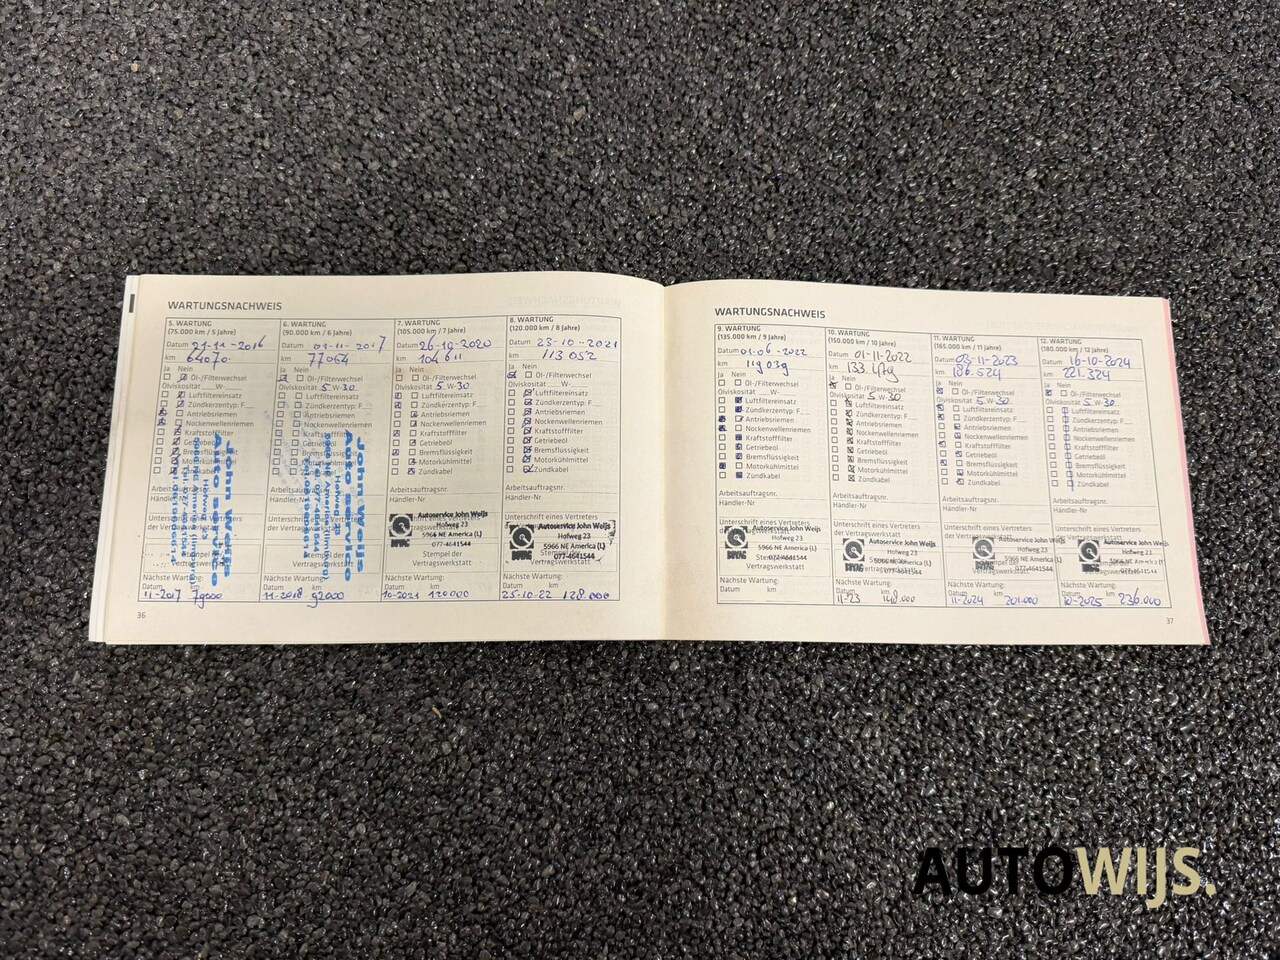 WARTUNGSNACHWEIS
5. WARTUNG
(75.000 km / 5 Jahre)
Datum 21-11-2016
km 64070
Ja Nein
Öl-/Filterwechsel
Ölviskosität W-
Luftfiltereinsatz
Zündkerzentyp: F
Antriebsriemen
Nockenwellenriemen
Kraftstofffilter
Getriebeöl
Bremsflüssigkeit
Motorkühlmittel
Zündkabel
Arbeitsauftragsnr.
Händler-Nr
John Weijs
Auto service
Hofweg
Nächste Wartung:
Datum km
11-2017 79000
6. WARTUNG
(90.000 km / 6 Jahre)
Datum 01-11-2017
km 77064
Ja Nein
Öl-/Filterwechsel
Ölviskosität 5 W-30
Luftfiltereinsatz
Zündkerzentyp: F
Antriebsriemen
Nockenwellenriemen
John Weijs
Auto service
Hofweg
Nächste Wartung:
Datum km
11-2018 92000
7. WARTUNG
(105.000 km / 7 Jahre)
Datum 26-10-2020
km 104611
Ja Nein
Öl-/Filterwechsel
Ölviskosität 5 W-30
Luftfiltereinsatz
Zündkerzentyp: F
Antriebsriemen
Nockenwellenriemen
Kraftstofffilter
Getriebeöl
Bremsflüssigkeit
Motorkühlmittel
Zündkabel
Arbeitsauftragsnr.
Händler-Nr
Autoservice John Weijs
Hofweg 23
5966 NE America (L)
077-4641544
Stempel der
Vertragswerkstatt
Nächste Wartung:
Datum km
10-2021 120000
8. WARTUNG
(120.000 km / 8 Jahre)
Datum 25-10-2021
km 113052
Ja Nein
Öl-/Filterwechsel
Ölviskosität W-
Luftfiltereinsatz
Zündkerzentyp: F
Antriebsriemen
Nockenwellenriemen
Kraftstofffilter
Getriebeöl
Bremsflüssigkeit
Motorkühlmittel
Zündkabel
Arbeitsauftragsnr.
Händler-Nr
Autoservice John Weijs
Hofweg 23
5966 NE America (L)
077-4641544
Vertragswerkstatt
Nächste Wartung:
Datum km
25-10-22 128.000
36
WARTUNGSNACHWEIS
9. WARTUNG
(135.000 km / 9 Jahre)
Datum 01-06-2022
km 119039
Ja Nein
Öl-/Filterwechsel
Ölviskosität W-
Luftfiltereinsatz
Zündkerzentyp: F
Antriebsriemen
Nockenwellenriemen
Kraftstofffilter
Getriebeöl
Bremsflüssigkeit
Motorkühlmittel
Zündkabel
Arbeitsauftragsnr.
Händler-Nr.
Autoservice John Weijs
Hofweg 23
5966 NE America (L)
077-4641544
Nächste Wartung:
Datum km
10. WARTUNG
(150.000 km / 10 Jahre)
Datum 01-11-2022
km
Ja Nein
Öl-/Filterwechsel
Ölviskosität 5 W-30
Luftfiltereinsatz
Zündkerzentyp: F
Antriebsriemen
Nockenwellenriemen
Kraftstofffilter
Getriebeöl
Bremsflüssigkeit
Motorkühlmittel
Zündkabel
Arbeitsauftragsnr.
Händler-Nr.
Unterschrift eines Vertreters
Autoservice John Weijs
Hofweg 23
5966 NE America (L)
077-4641544
Nächste Wartung:
Datum km
11-23 148.000
11. WARTUNG
(165.000 km / 11 Jahre)
Datum 03-11-2023
km 186.524
Ja Nein
Öl-/Filterwechsel
Ölviskosität 5 W-30
Luftfiltereinsatz
Zündkerzentyp: F
Antriebsriemen
Nockenwellenriemen
Kraftstofffilter
Getriebeöl
Bremsflüssigkeit
Motorkühlmittel
Zündkabel
Arbeitsauftragsnr.
Händler-Nr.
Unterschrift eines Vertreters
Autoservice John Weijs
Hofweg 23
5966 NE America (L)
077-4641544
Nächste Wartung:
Datum km
11-2024 201.000
12. WARTUNG
(180.000 km / 12 Jahre)
Datum 16-10-2024
km 221.324
Ja Nein
Öl-/Filterwechsel
Ölviskosität 5 W-30
Luftfiltereinsatz
Zündkerzentyp: F
Antriebsriemen
Nockenwellenriemen
Kraftstofffilter
Getriebeöl
Bremsflüssigkeit
Motorkühlmittel
Zündkabel
Arbeitsauftragsnr.
Händler-Nr.
Unterschrift eines Vertreters
Autoservice John Weijs
Hofweg 23
5966 NE America (L)
077-4641544
Nächste Wartung:
Datum km
10-2025 236.000
37
AUTOWIJS.